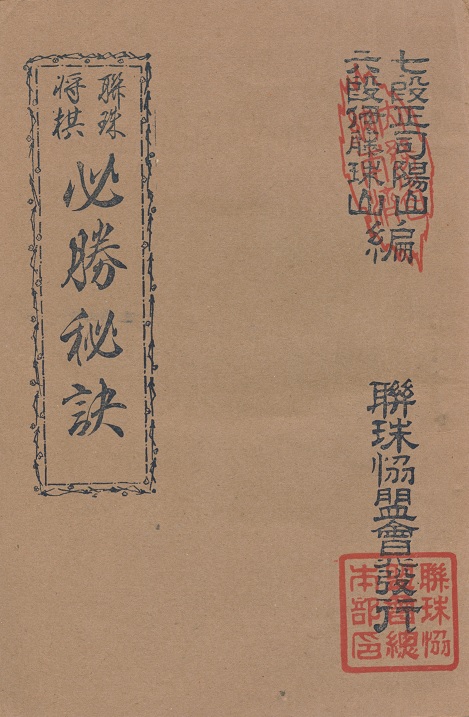 七段正司陽山
六段藤珠山
編
聯珠協盟會發行
聯珠協
盟會總
本部印
聯珠
将棋
必勝秘訣